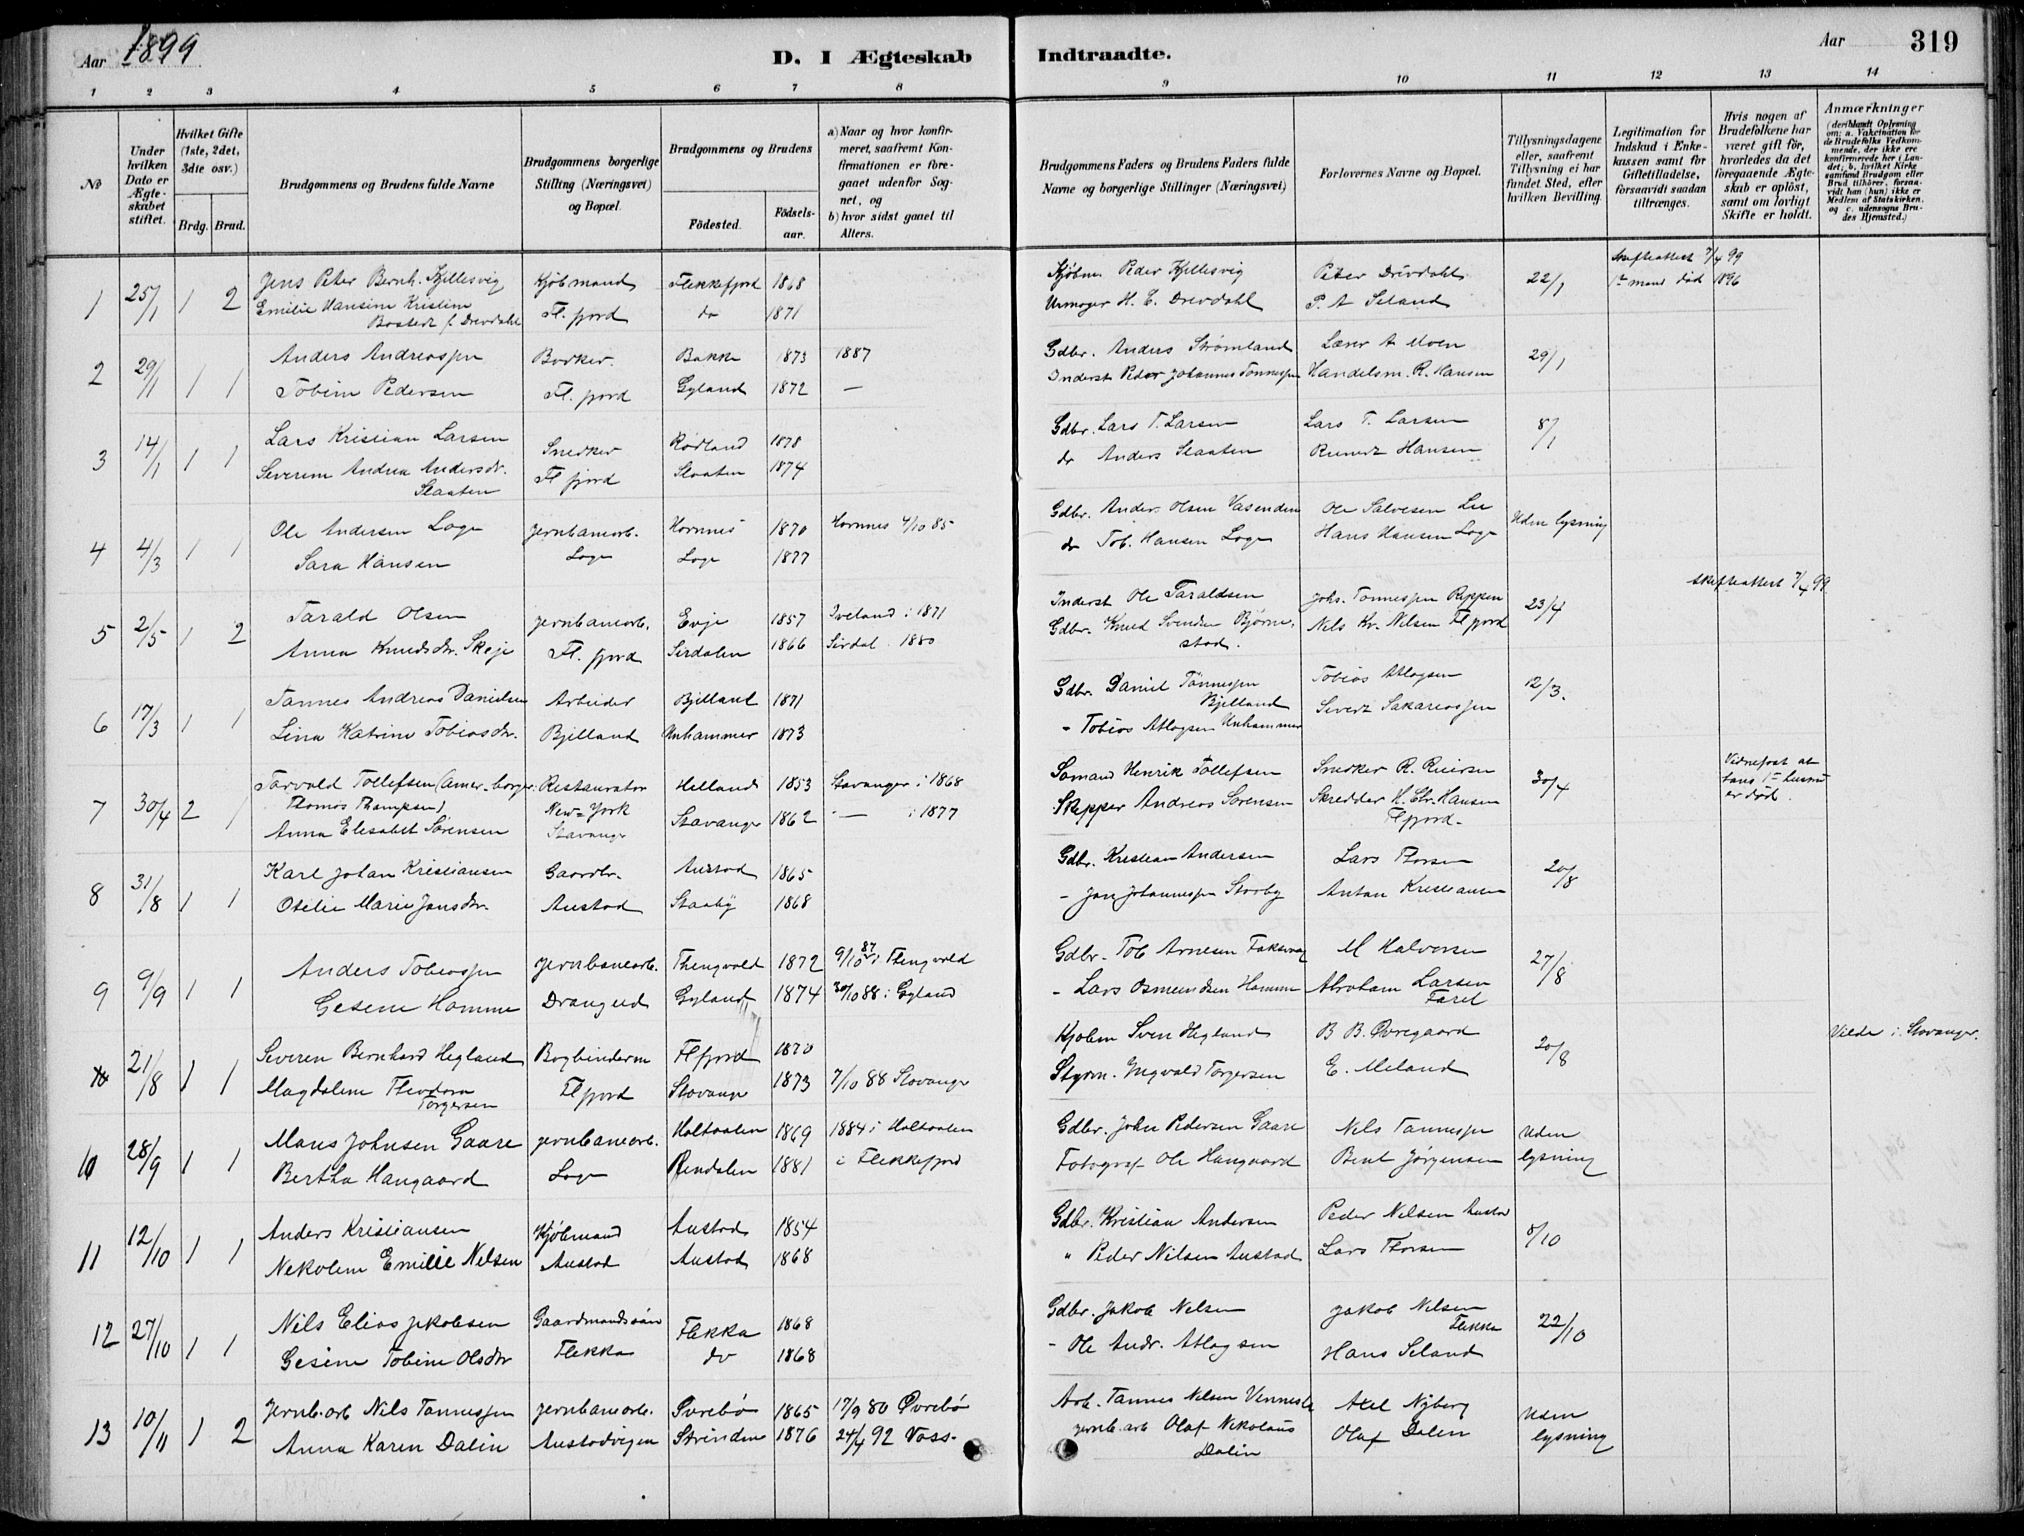 Aar 1899
D. I Ægteskab Indtraadte.
Aar
319
1 2 3 4 5 6 7 8 9 10 11 12 13 14
No
Under hvilken Dato er Ægteskabet stiftet.
Hvilket Gifte (1ste, 2det, 3die osv.)
Brdg. Brud.
Brudgommens og Brudens fulde Navne
Brudgommens borgerlige Stilling (Næringsvei) og Bopæl.
Brudgommens og Brudens
Födested. Födselsaar.
a) Naar og hvor konfirmeret, saafremt Konfirmationen er foregaaet udenfor Sognet, og
b) hvor sidst gaaet til Alters.
Brudgommens Faders og Brudens Faders fulde Navne og borgerlige Stillinger (Næringsvei)
Forlovernes Navne og Bopæl.
Tillysningsdagene eller, saafremt Tillysning ei har fundet Sted, efter hvilken Bevilling.
Legitimation for Indskud i Enkekassen samt for Giftetilladelse, forsaavidt saadan tiltrænges.
Hvis nogen af Brudefolkene har været gift för, hvorledes da det foregaaende Ægteskab er oplöst, samt om lovligt Skifte er holdt.
Anmærkninger (deriblandt Oplysning om: a. Vakcination for de Brudefolks Vedkommende, der ikke ere konfirmerede her i Landet; b. hvilket Kirkesamfund Brudgom eller Brud tilhörer, forsaavidt han (hun) ikke er Medlem af Statskirken, og c. udensogns Brudes Hjemsted.)
1 25/1 1 2 Jens Peter Bernh. Kjellesvig Kjöbmand Flekkefjord 1868 Kjöbm. Peder Kjellesvig Peter Drivdahl 22/1 Skifteattest 7/4 99
Emilie Hansine Kristine Fl. fjord do 1871 Urmager H. E. Drevdahl P. A Seland 1ste mand död 1896
Bostedt f. Drevdahl
2 29/1 1 1 Anders Andreassen Bødker Bakke 1873 1887 Gdbr. Anders Strømland Lærer A Moen 29/1
Tobine Pedersen Fl. fjord Gyland 1872 — Inderst Peder Johannes Tønnessen Handelsm. R. Hansen
3 14/1 1 1 Lars Kristian Larsen Snedker Rødland 1878 Gdbr. Lars T. Larsen Lars T. Larsen 8/1
Severine Andrea Andersdtr. Fl fjord Slaaten 1874 do Anders Slaaten Reinert Hansen
Slaaten
4 4/3 1 1 Ole Andersen Loge Jernbanearb. Hornnes 1870 Hornnes 4/10 85 Gdbr. Anders Olsen Vasenden Ole Salvesen Lie Uden lysning
Sara Hansen Loge Loge 1877 do Tob. Hansen Loge Hans Hansen Loge
5 2/5 1 2 Tarald Olsen Jernbanearb. Evje 1857 Iveland i 1871 Inderst Ole Taraldsen Johs. Tønnessen Reppen 23/4 Skifteattest 7/4 99
Anna Knudsdtr. Skeje Fl. fjord Sirdalen 1866 Sirdal 1880 Gdbr. Knud Svendsen Bjørnestad. Nils Kr. Nilsen Fl fjord
6 17/3 1 1 Tønnes Andreas Danielsen Arbeider Bjelland 1871 Gdbr. Daniel Tönnessen Bjelland Tobias Atlagsen 12/3.
Lina Katrine Tobiasdtr. Bjelland Unhammer 1873 - Tobias Atlagsen Unhammer Sivert Sakariassen
7 30/4 2 1 Torvald Tollefsen (Amer. borger Restauratør Helland 1853 Stavanger i 1868 Sømand Henrik Tollefsen Snedker R. Reiersen 30/4 Vidnefast at
Thomas Thompsen) New-York hans 1ste hustru
Anna Elisabet Sørensen Stavanger Stavanger 1862 — i 1877 Skipper Andreas Sørensen Skredder H. Chr. Hansen Flfjord. er død.
8 31/8 1 1 Karl Johan Kristiansen Gaardbr. Austad 1865 Gdbr. Kristian Andersen Lars Thorsen 20/8
Otilie Marie Jansdtr. Austad Staaby 1868 - Jan Johannessen Staaby Anton Kristiansen
9 9/9 1 1 Anders Tobiassen Jernbanearb. Thengvold 1872 9/10 87 i Thengvold Gdbr. Tob Arnesen M Halvorsen 27/8
Gesine Homme Drangeid Gyland 1874 30/10 88 i Gyland - Lars Osmundsen Homme Abraham Larsen
21/8 1 1 Severin Bernhard Hegland Bogbinder Fl fjord 1870 Kjøbm Sven Hegland B B. Øvregaard 20/8 Viede i Stavanger.
Magdalene Theodora Fl fjord Stavanger 1873 7/10 88 Stavanger Styrm. Ingvald Torgersen E. Meland
Torgersen
10 28/9 1 1 Mons Johnsen Gaare Jernbanearb. Holtaalen 1869 1884 i Holtaalen Gdbr. John Pedersen Gaare Nils Tønnessen Uden
Bertha Haugaard Loge Rendalen 1881 i Flekkefjord Fotograf Ole Haugaard Bent Jørgensen lysning
11 12/10 1 1 Anders Kristiansen Kjöbmand Austad 1854 Gdbr. Kristian Andersen Peder Nilsen Austad 8/10
Nikoline Emilie Nilsen Austad Austad 1868 " Peder Nilsen Austad Lars Thorsen
12 27/10 1 1 Nils Elias Jakobsen Gaardmandssön Flikka 1868 Gdbr. Jakob Nilsen Jakob Nilsen Flikka 22/10
Gesine Tobine Olsdtr Flikka do 1868 - Ole Andr. Atlagsen Hans Seland
13 10/11 1 2 Jernb. arb Nils Tønnessen Jernbanearb. Øvrebö 1865 17/9 80 Øvrebö Arb. Tønnes Nilsen Vennesla Axel Nyberg Uden
Anna Karen Dalin Austadvigen Strinden 1876 24/4 92 Voss. Jernb. arb Olaf Nikolaus Dalin Olaf Dalen lysning